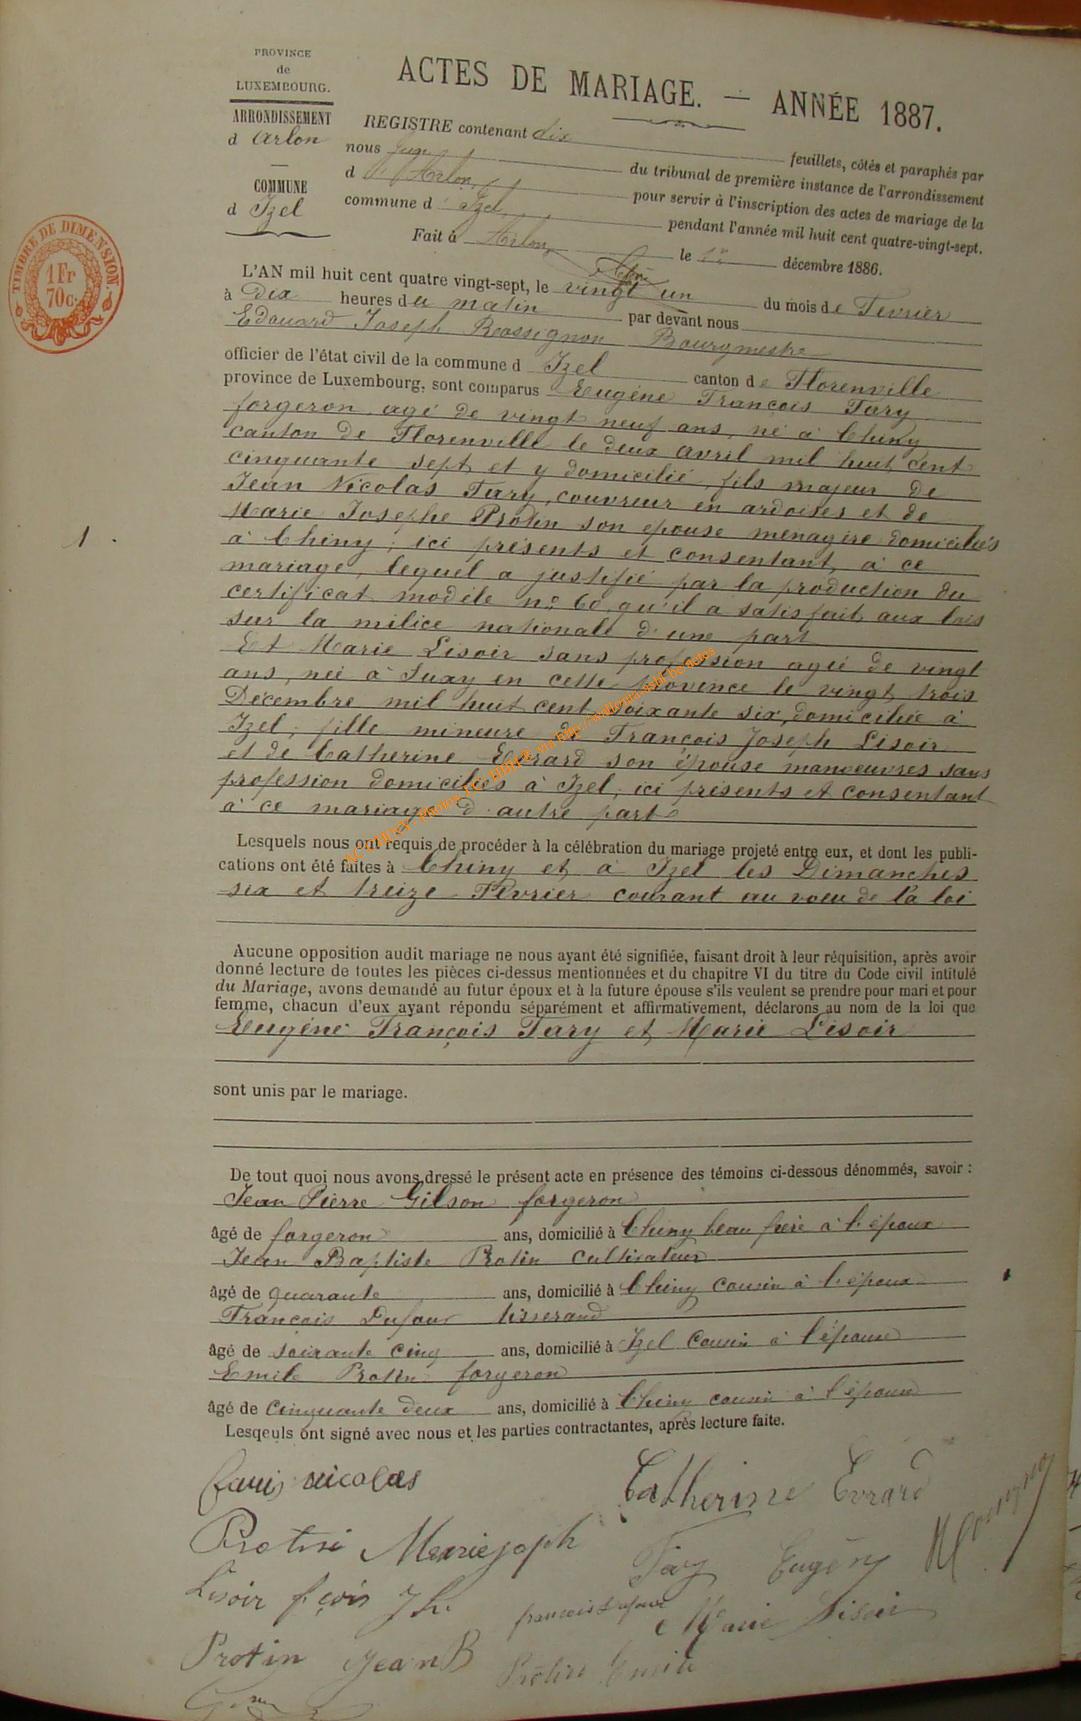 PROVINCE
de
LUXEMBOURG.
ARRONDISSEMENT
d Arlon
COMMUNE
d Izel
ACTES DE MARIAGE. — ANNÉE 1887.
REGISTRE contenant dix feuillets, côtés et paraphés par
nous Juge du tribunal de première instance de l'arrondissement
d'Arlon, pour servir à l'inscription des actes de mariage de la
commune d Izel, pendant l'année mil huit cent quatre-vingt-sept.
Fait à Arlon, le décembre 1886.
TIMBRE DE DIMENSION.
1 Fr
70 c.
L'AN mil huit cent quatre vingt-sept, le vingt un du mois de Février
à Dix heures du matin par devant nous
Edouard Joseph Rossignon Bourgmestre
officier de l'état civil de la commune d Izel canton de Florenville
province de Luxembourg, sont comparus Eugène François Fary
forgeron, agé de vingt neuf ans, né à Chiny
canton de Florenville le deux avril mil huit cent
cinquante sept et y domicilié, fils majeur de
Jean Nicolas Fary, couvreur en ardoises et de
Marie Josephe Protin son épouse ménagère domiciliés
1.
à Chiny, ici présents et consentant, à ce
mariage, lequel a justifié par la production du
certificat modèle no 60 qu'il a satisfait aux lois
sur la milice nationale d'une part
Et Marie Lisoir sans profession agée de vingt
ans, née à Suxy en cette province le vingt trois
Décembre mil huit cent soixante six, domiciliée à
Izel, fille mineure de François Joseph Lisoir
et de Catherine Evrard son épouse manoeuvres sans
profession domiciliés à Izel, ici présents et consentant
à ce mariage d'autre part
Lesquels nous ont requis de procéder à la célébration du mariage projeté entre eux, et dont les publi-
cations ont été faites à Chiny et à Izel les Dimanches
six et treize Février courant au voeu de la loi
Aucune opposition audit mariage ne nous ayant été signifiée, faisant droit à leur réquisition, après avoir
donné lecture de toutes les pièces ci-dessus mentionnées et du chapitre VI du titre du Code civil intitulé
du Mariage, avons demandé au futur époux et à la future épouse s'ils veulent se prendre pour mari et pour
femme, chacun d'eux ayant répondu séparément et affirmativement, déclarons au nom de la loi que
Eugène François Fary et Marie Lisoir
sont unis par le mariage.
De tout quoi nous avons dressé le présent acte en présence des témoins ci-dessous dénommés, savoir :
Jean Pierre Gilson forgeron
âgé de forgeron ans, domicilié à Chiny beau frère à l'époux
Jean Baptiste Protin cultivateur
âgé de quarante ans, domicilié à Chiny cousin à l'époux
François Dufour tisserand
âgé de soixante cinq ans, domicilié à Izel cousin à l'épouse
Emile Protin forgeron
âgé de cinquante deux ans, domicilié à Chiny cousin à l'épouse
Lesqeuls ont signé avec nous et les parties contractantes, après lecture faite.
nicolas Catherine Evrard
Protin Mariejoseph Eugène
Lisoir françois dufour Marie Lisoir
Protin Jean B Protin Emile